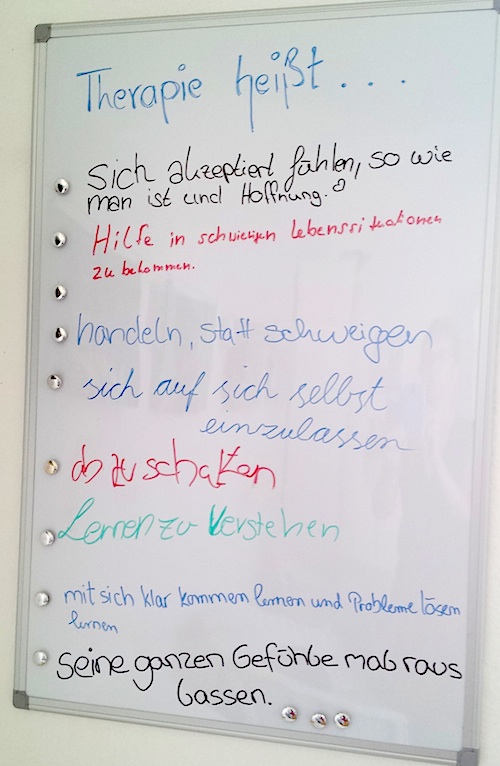 Therapie heißt...
Sich akzeptiert fühlen, so wie
man ist und Hoffnung.
Hilfe in schwierigen Lebenssituationen
zu bekommen.
handeln, statt schweigen
sich auf sich selbst
einzulassen
abzuschalten
Lernen zu Verstehen
mit sich klar kommen lernen und Probleme lösen
lernen
Seine ganzen Gefühle mal raus
lassen.